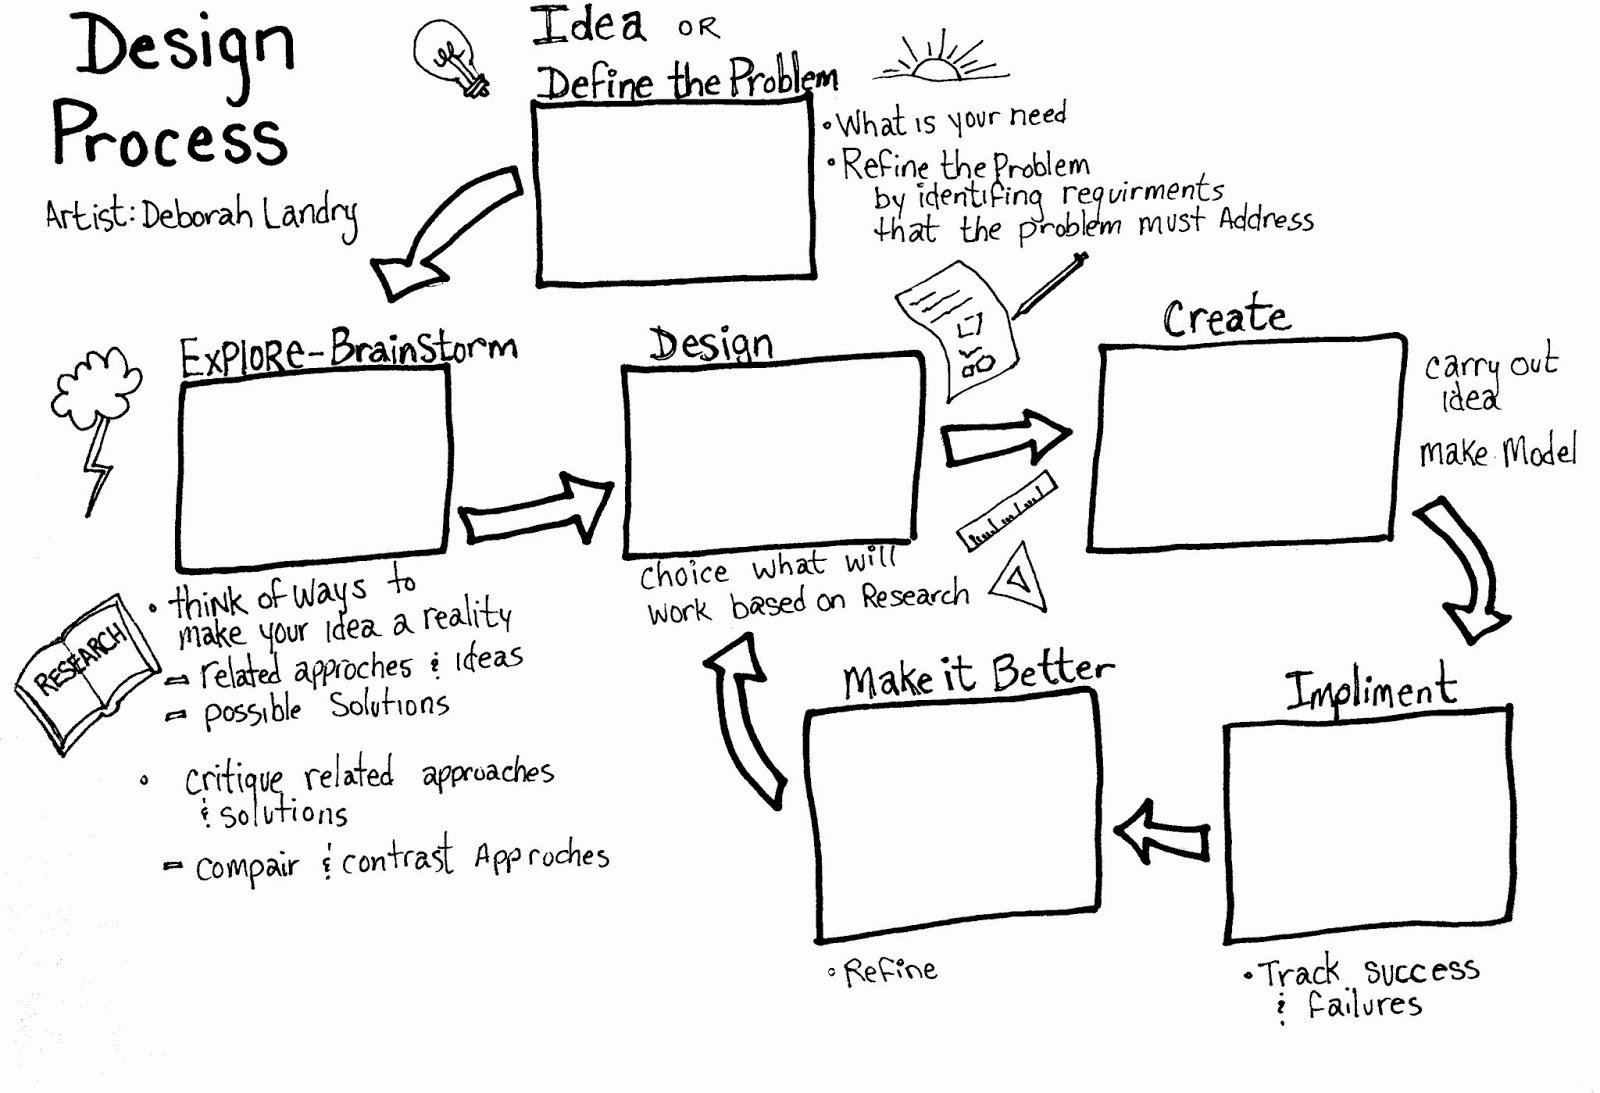 Design
Process
Artist: Deborah Landry
Idea OR
Define the Problem
• What is your need
• Refine the Problem
by identifing requirments
that the problem must Address
Explore-BrainStorm
RESEARCH
• think of ways to
make your idea a reality
- related approches & ideas
- possible Solutions
• critique related approaches
& solutions
- compair & contrast Approches
Design
choice what will
work based on Research
Create
carry out
idea
make Model
Impliment
• Track success
& failures
Make it Better
• Refine